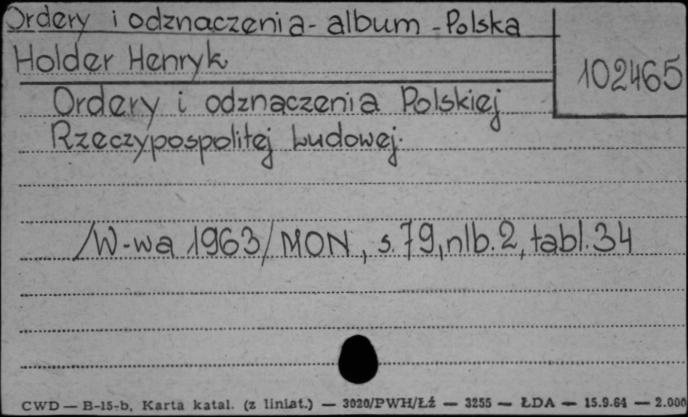 Ordery i odznaczenia - album - Polska
Holder Henryk
102465
Ordery i odznaczenia Polskiej
Rzeczypospolitej Ludowej.
/W-wa 1963/ MON, s.79, nlb.2, tabl.34
CWD — B-15-b, Karta katal. (z liniat.) — 3020/PWH/Łż — 3255 — ŁDA — 15.9.64 — 2.000